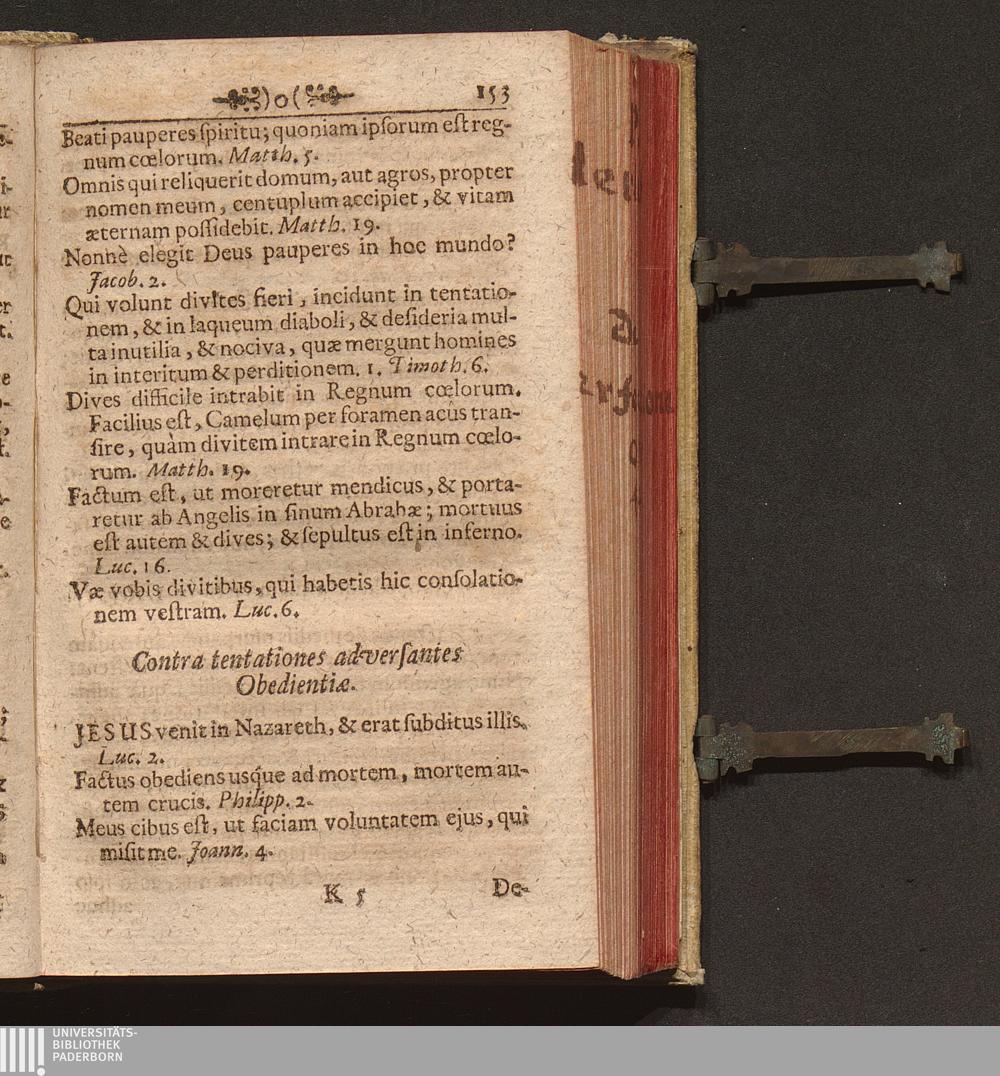 )o( 153
Beati pauperes spiritu; quoniam ipsorum est reg-
num cœlorum. Matth. 5.
Omnis qui reliquerit domum, aut agros, propter
nomen meum, centuplum accipiet, & vitam
æternam possidebit. Matth. 19.
Nonnè elegit Deus pauperes in hoc mundo?
Jacob. 2.
Qui volunt divites fieri, incidunt in tentatio-
nem, & in laqueum diaboli, & desideria mul-
ta inutilia, & nociva, quæ mergunt homines
in interitum & perditionem. 1. Timoth. 6.
Dives difficile intrabit in Regnum cœlorum.
Facilius est, Camelum per foramen acûs tran-
sire, quàm divitem intrare in Regnum cœlo-
rum. Matth. 19.
Factum est, ut moreretur mendicus, & porta-
retur ab Angelis in sinum Abrahæ; mortuus
est autem & dives; & sepultus est in inferno.
Luc. 16.
Væ vobis divitibus, qui habetis hic consolatio-
nem vestram. Luc. 6.
Contra tentationes adversantes
Obedientiæ.
JESUS venit in Nazareth, & erat subditus illis.
Luc. 2.
Factus obediens usq́ue ad mortem, mortem au-
tem crucis. Philipp. 2.
Meus cibus est, ut faciam voluntatem ejus, qui
misit me. Joann. 4.
K 5 De-
UNIVERSITÄTS-
BIBLIOTHEK
PADERBORN